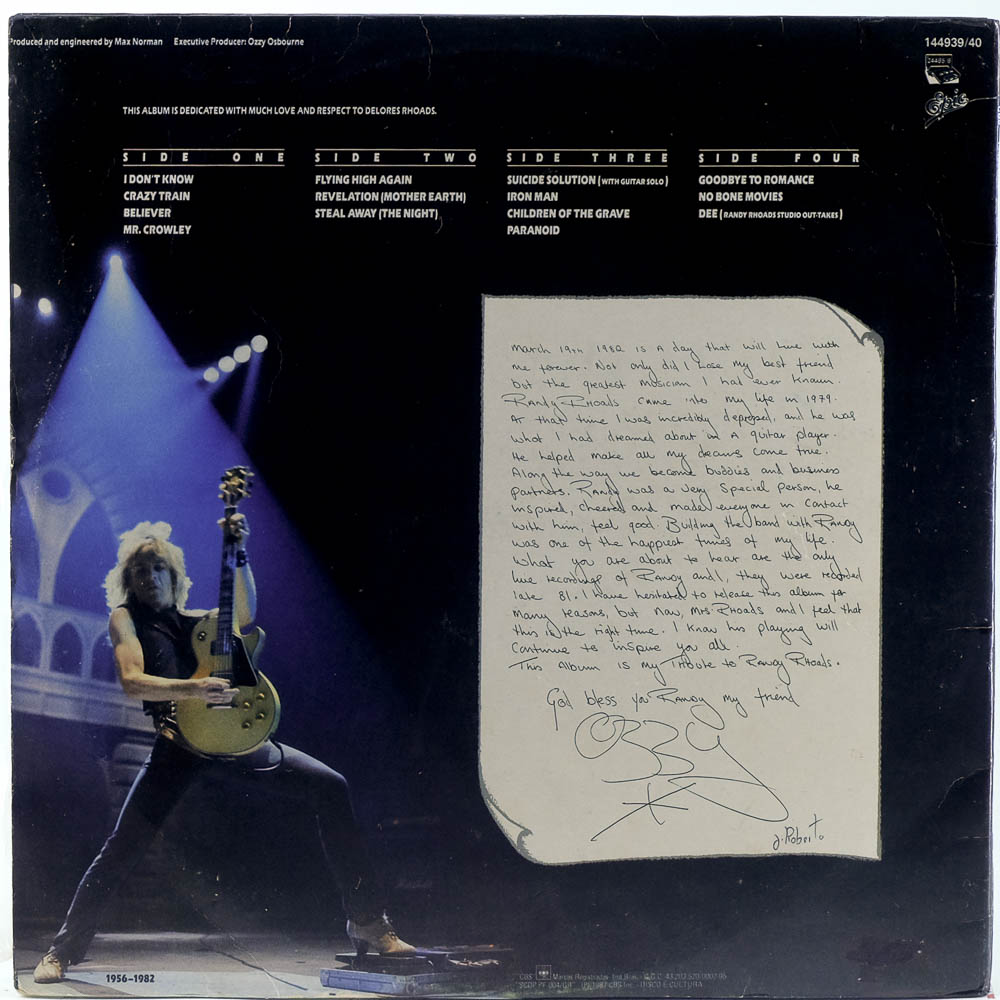 Produced and engineered by Max Norman Executive Producer: Ozzy Osbourne
144939/40
Epic
THIS ALBUM IS DEDICATED WITH MUCH LOVE AND RESPECT TO DELORES RHOADS.
SIDE ONE
I DON'T KNOW
CRAZY TRAIN
BELIEVER
MR. CROWLEY
SIDE TWO
FLYING HIGH AGAIN
REVELATION (MOTHER EARTH)
STEAL AWAY (THE NIGHT)
SIDE THREE
SUICIDE SOLUTION (WITH GUITAR SOLO)
IRON MAN
CHILDREN OF THE GRAVE
PARANOID
SIDE FOUR
GOODBYE TO ROMANCE
NO BONE MOVIES
DEE (RANDY RHOADS STUDIO OUT-TAKES)
March 19th 1982 is a day that will live with
me forever. Not only did I lose my best friend
but the greatest musician I had ever known.
Randy Rhoads came into my life in 1979.
At that time I was incredibly depressed, and he was
what I had dreamed about in a guitar player.
He helped make all my dreams come true.
Along the way we became buddies and business
partners. Randy was a very special person, he
inspired, cheered and made everyone in contact
with him, feel good. Building the band with Randy
was one of the happiest times of my life.
What you are about to hear are the only
live recordings of Randy and I, they were recorded
late 81. I have hesitated to release this album for
many reasons, but now, Mrs. Rhoads and I feel that
this is the right time. I know his playing will
continue to inspire you all.
This Album is my Tribute to Randy Rhoads.
God bless you Randy my friend
Ozzy
J. Roberto
1956-1982
CBS Marcas Registradas
DISCO É CULTURA